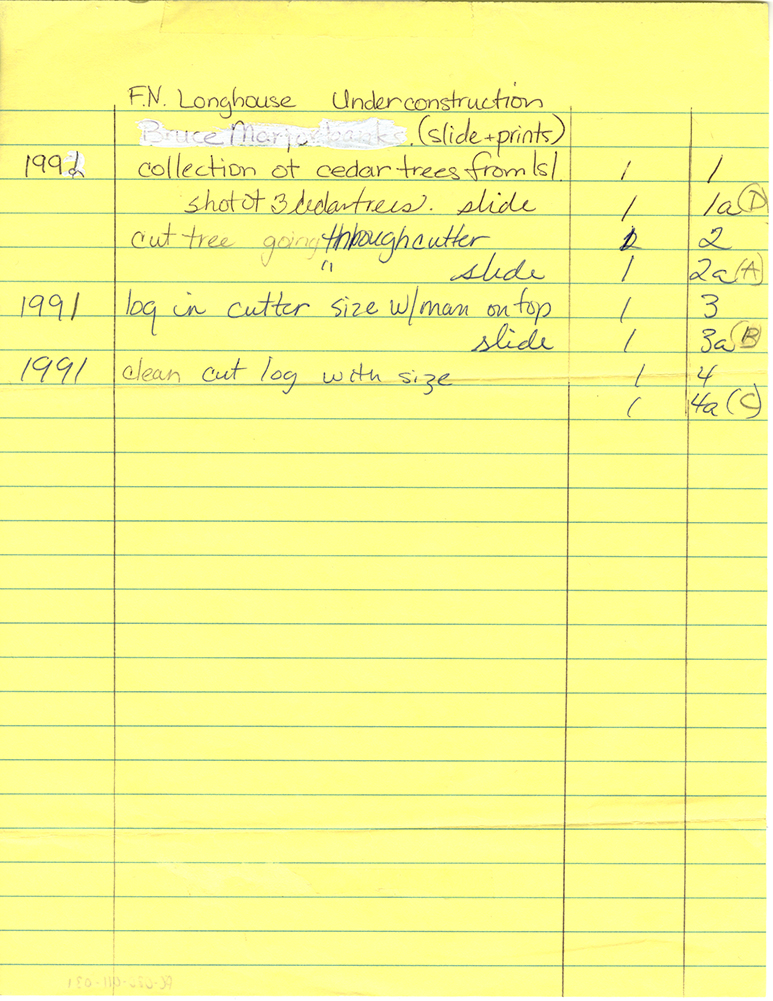 F.N. Longhouse Underconstruction
Bruce Marjoribanks. (slide + prints)
1992 collection of cedar trees from Isl. 1 1
shot of 3 cedar trees. slide 1 1a (D)
cut tree going through cutter 1 2
" slide 1 2a (A)
1991 log in cutter size w/man on top 1 3
slide 1 3a (B)
1991 clean cut log with size 1 4
1 4a (C)